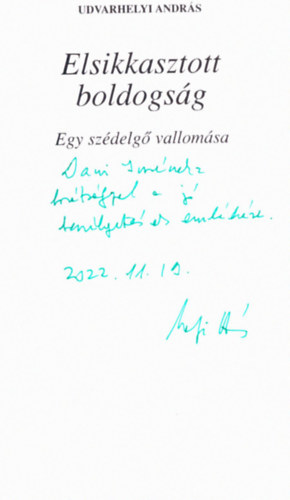 UDVARHELYI ANDRÁS
Elsikkasztott
boldogság
Egy szédelgő vallomása
Dani Imrének
barátsággal a jó
beszélgetés emlékére.
2022. 11. 10.